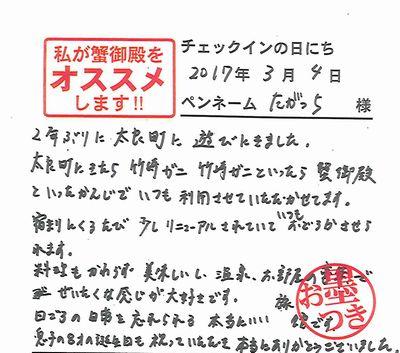 私が蟹御殿を
オススメ
します!!
チェックインの日にち
2017年 3月 4日
ペンネーム たがっち 様
2年ぶりに 太良町に 遊びにきました。
太良町にきたら 竹崎ガニ 竹崎ガニといったら 蟹御殿
といったかんじで いつも 利用させていただいてます。
宿泊にくるたび 少しリニューアルされていて いつも おどろかさせら
れます。
料理もかわらず 美味しいし 温泉、お部屋の
ぜいたくな感じが大好きです。
日ごろの 日常を 忘れられる 本当にいい です。
息子の8才の誕生日も 祝っていただき 本当にありがとうございました。
お墨
つき